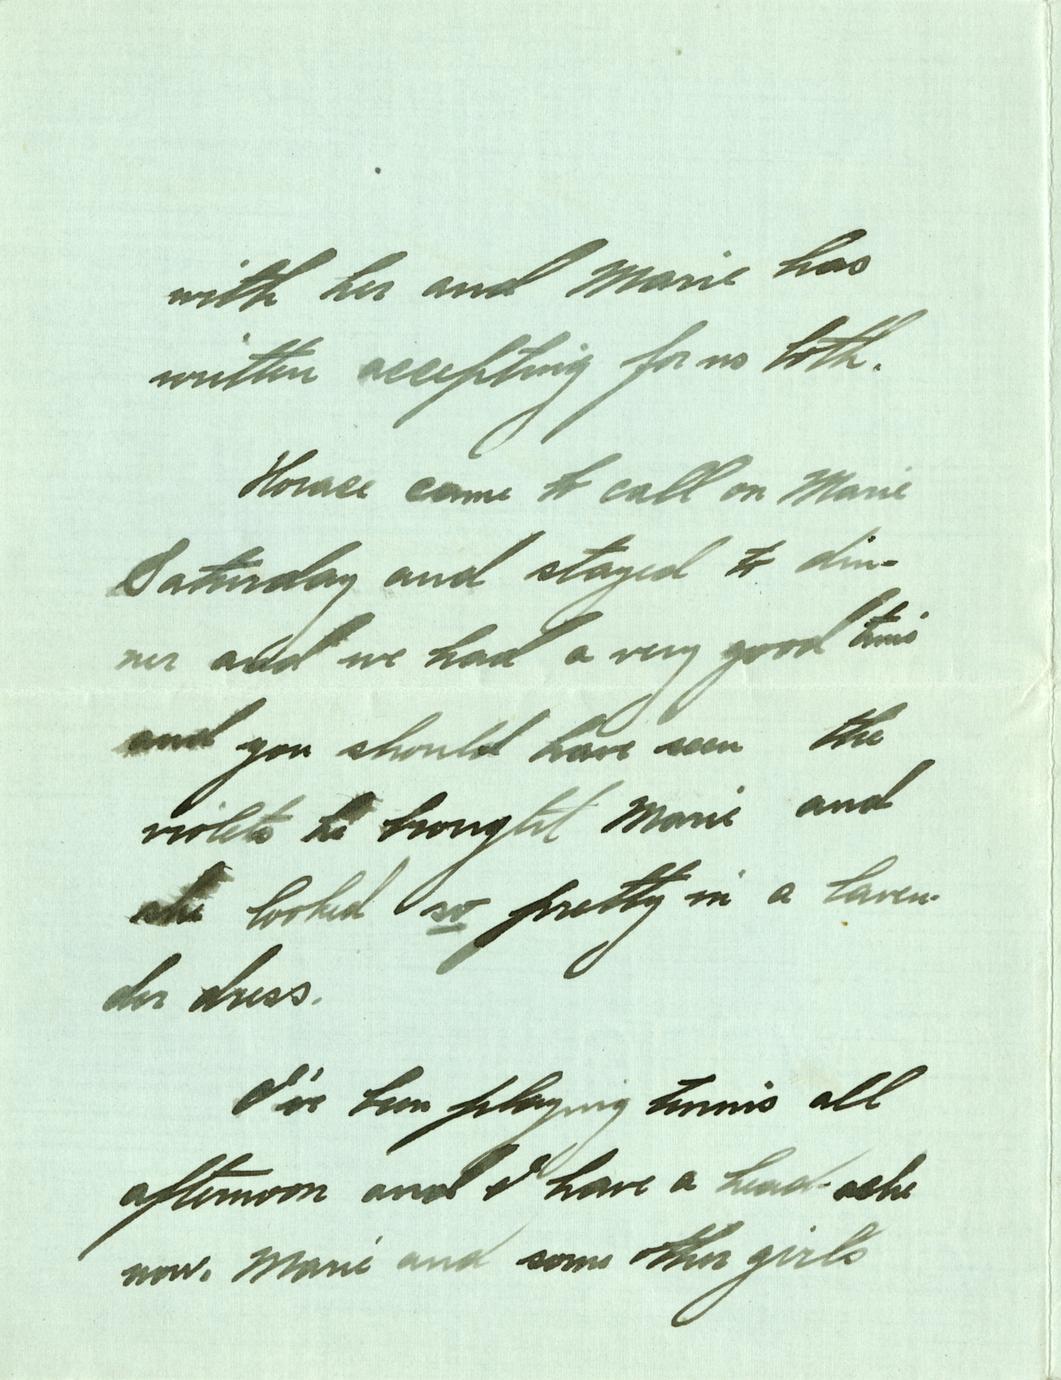 with her and Marie has
written accepting for us both.
Horace came to call on Marie
Saturday and stayed to din-
ner and we had a very good time
and you should have seen the
violets he brought Marie and
she looked so pretty in a laven-
der dress.
I've been playing tennis all
afternoon and I have a head-ache
now. Marie and some other girls